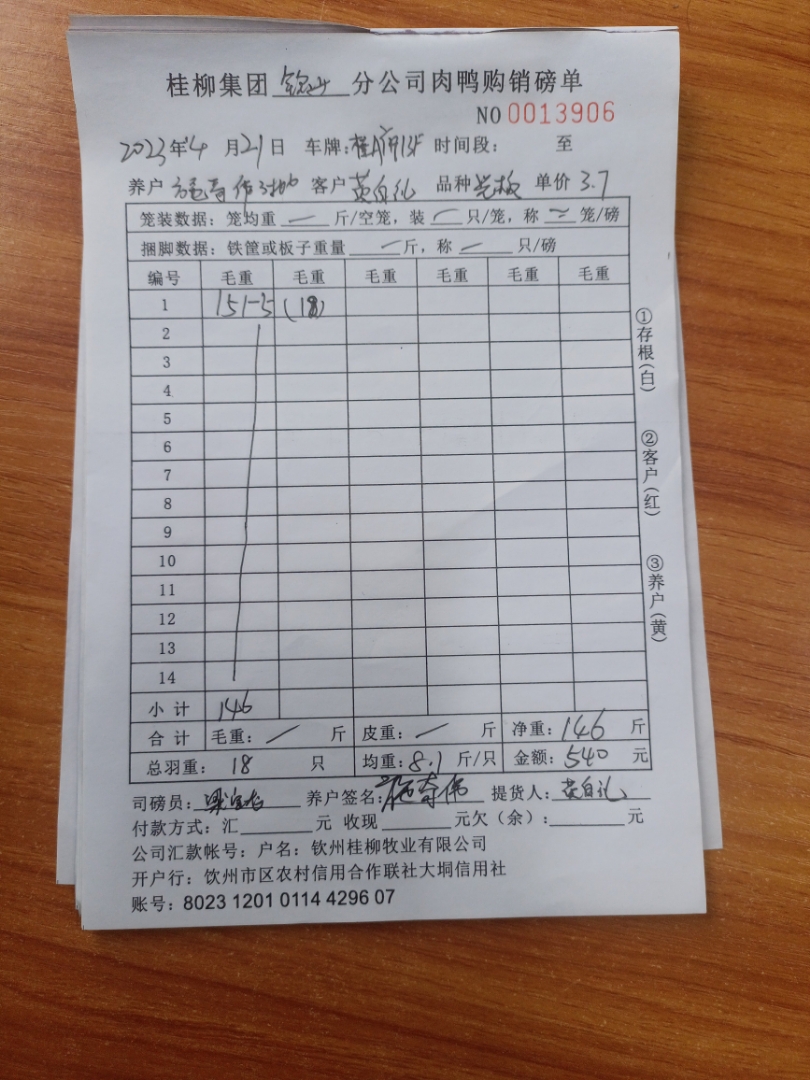 桂柳集团 钦州 分公司肉鸭购销磅单
NO 0013906
2023年4月21日 车牌: 时间段: 至
养户 客户 黄自礼 品种 光板 单价 3.7
笼装数据:笼均重 — 斤/空笼,装 — 只/笼,称 — 笼/磅
捆脚数据:铁筐或板子重量 — 斤,称 — 只/磅
编号 毛重 毛重 毛重 毛重 毛重 毛重
1 151-5 (18)
2
3
4
5
6
7
8
9
10
11
12
13
14
小计 146
合计 毛重: / 斤 皮重: / 斤 净重: 146 斤
总羽重: 18 只 均重: 8.1 斤/只 金额: 540 元
司磅员: 养户签名: 提货人: 黄自礼
付款方式:汇 元 收现 元欠(余): 元
公司汇款帐号:户名:钦州桂柳牧业有限公司
开户行:饮州市区农村信用合作联社大垌信用社
账号:8023 1201 0114 4296 07
①存根(白)
②客户(红)
③养户(黄)